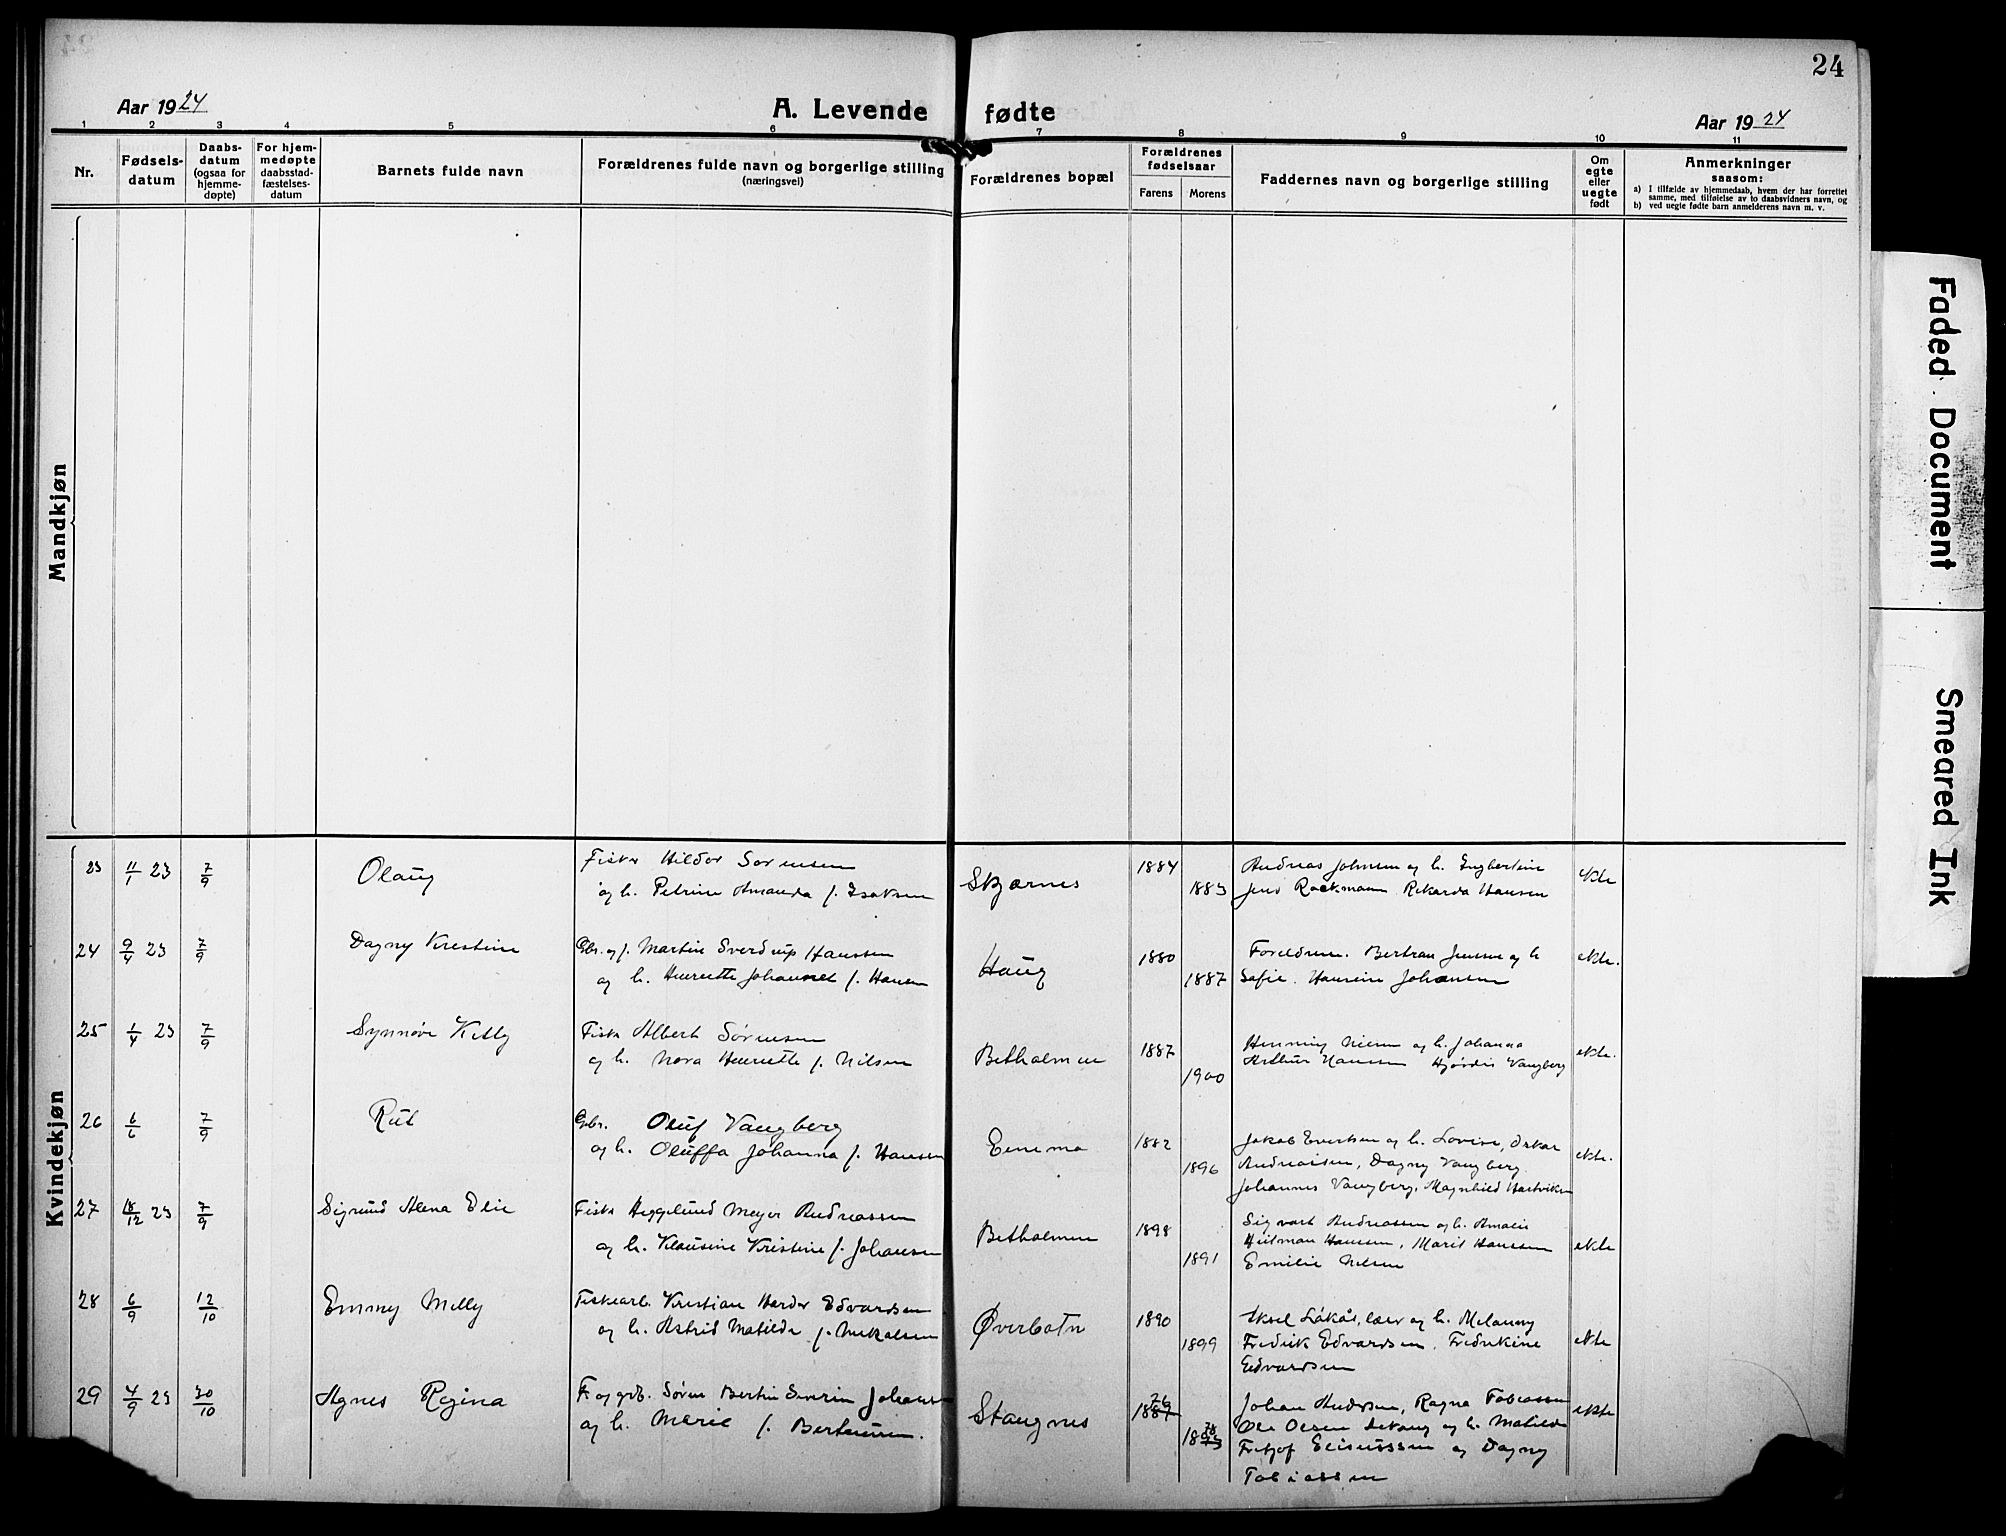 24
Aar 1924
A. Levende fødte
Aar 1924
1 2 3 4 5 6 7 8 9 10 11
Nr.
Fødsels-
datum
Daabs-
datum
(ogsaa for
hjemme-
døpte)
For hjem-
medøpte
daabsstad-
fæstelses-
datum
Barnets fulde navn
Forældrenes fulde navn og borgerlige stilling
(næringsvei)
Forældrenes bopæl
Forældrenes
fødselsaar
Farens Morens
Faddernes navn og borgerlige stilling
Om
egte
eller
uegte
født
Anmerkninger
saasom:
a) I tilfælde av hjemmedaab, hvem der har forrettet
samme, med tilføielse av to daabsvidners navn, og
b) ved uegte fødte barn anmelderens navn m. v.
Mandkjøn
Kvindekjøn
23 11/1 23 7/9 Olaug
Fisker Hildor Sørensen
og h. Petrine Amanda f. Isaksen
Skjærnes 1884
1883
Andreas Johnsen og h. Engbertine
Jens Rackmann Rikarda Hansen
ekte
24 9/4 23 7/9 Dagny Kristine
Gbr. og f. Martin Sverdrup Hanssen
og h. Henrette f. Hansen
Haug 1880
1887
Foreldrene. Bertran Jensen og h
Sofie. Johansen
ekte.
25 1/4 23 7/9 Synnøve Kitty
Fisker Albert Sørensen
og h. Nora Henriette f. Nilsen
1887
1900
Henning og h. Johanna
Arthur Hansen Hjørdis Vangberg
ekte.
26 6/6 7/9 Rut
Gbr. Oluf Vangberg
og h. Oluffa Johanna f. Hansen
1882
1896
Jakob Evertsen og h. Lovise, Oskar
Andreassen, Dagny Vangberg
Johannes Vangberg, Magnhild Hartviksen
ekte.
27 18/12 23 7/9 Sigrund Alena Elie
Fisker Heggelund Meyer Andreassen
og h. Klausine Kristine f. Johansen
1898
1891
Sigvart Andreassen og h. Amalie
Hilmar Hanssen, Marit Hanssen
Emilie Nilsen
ekte
28 6/9 12/10 Emmy Milly
Fiskearb. Kristian Harder Edvardsen
og h. Astrid Matilde f. Mikalsen
Øverbotn 1890
1899
Aksel lær og h. Melanny
Fredrik Edvardsen. Fredrikine
Edvardsen
ekte
29 4/9 23 30/10 Agnes Regina
F. og grb. Søren Bertin Severin Johansen
og h. Merie f. Berteussen.
Stangnes 1887 76
1893 78
Johan Andersen, Ragna Tobiassen
Ole Olsen og h. Matilde
Fritjof Eliseussen og Dagny
Tobiassen
ekte
Faded Document
Smeared Ink